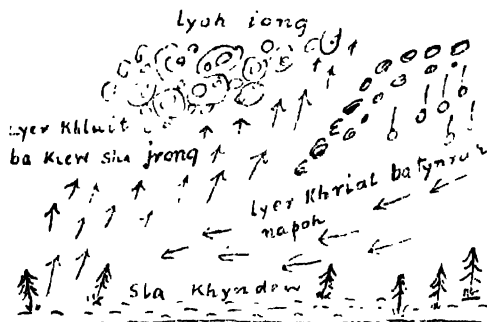 Lyoh iong
Lyer Khluit
ba Kiew sha jrong
Lyer Khriat
napoh
Sla Khyndew